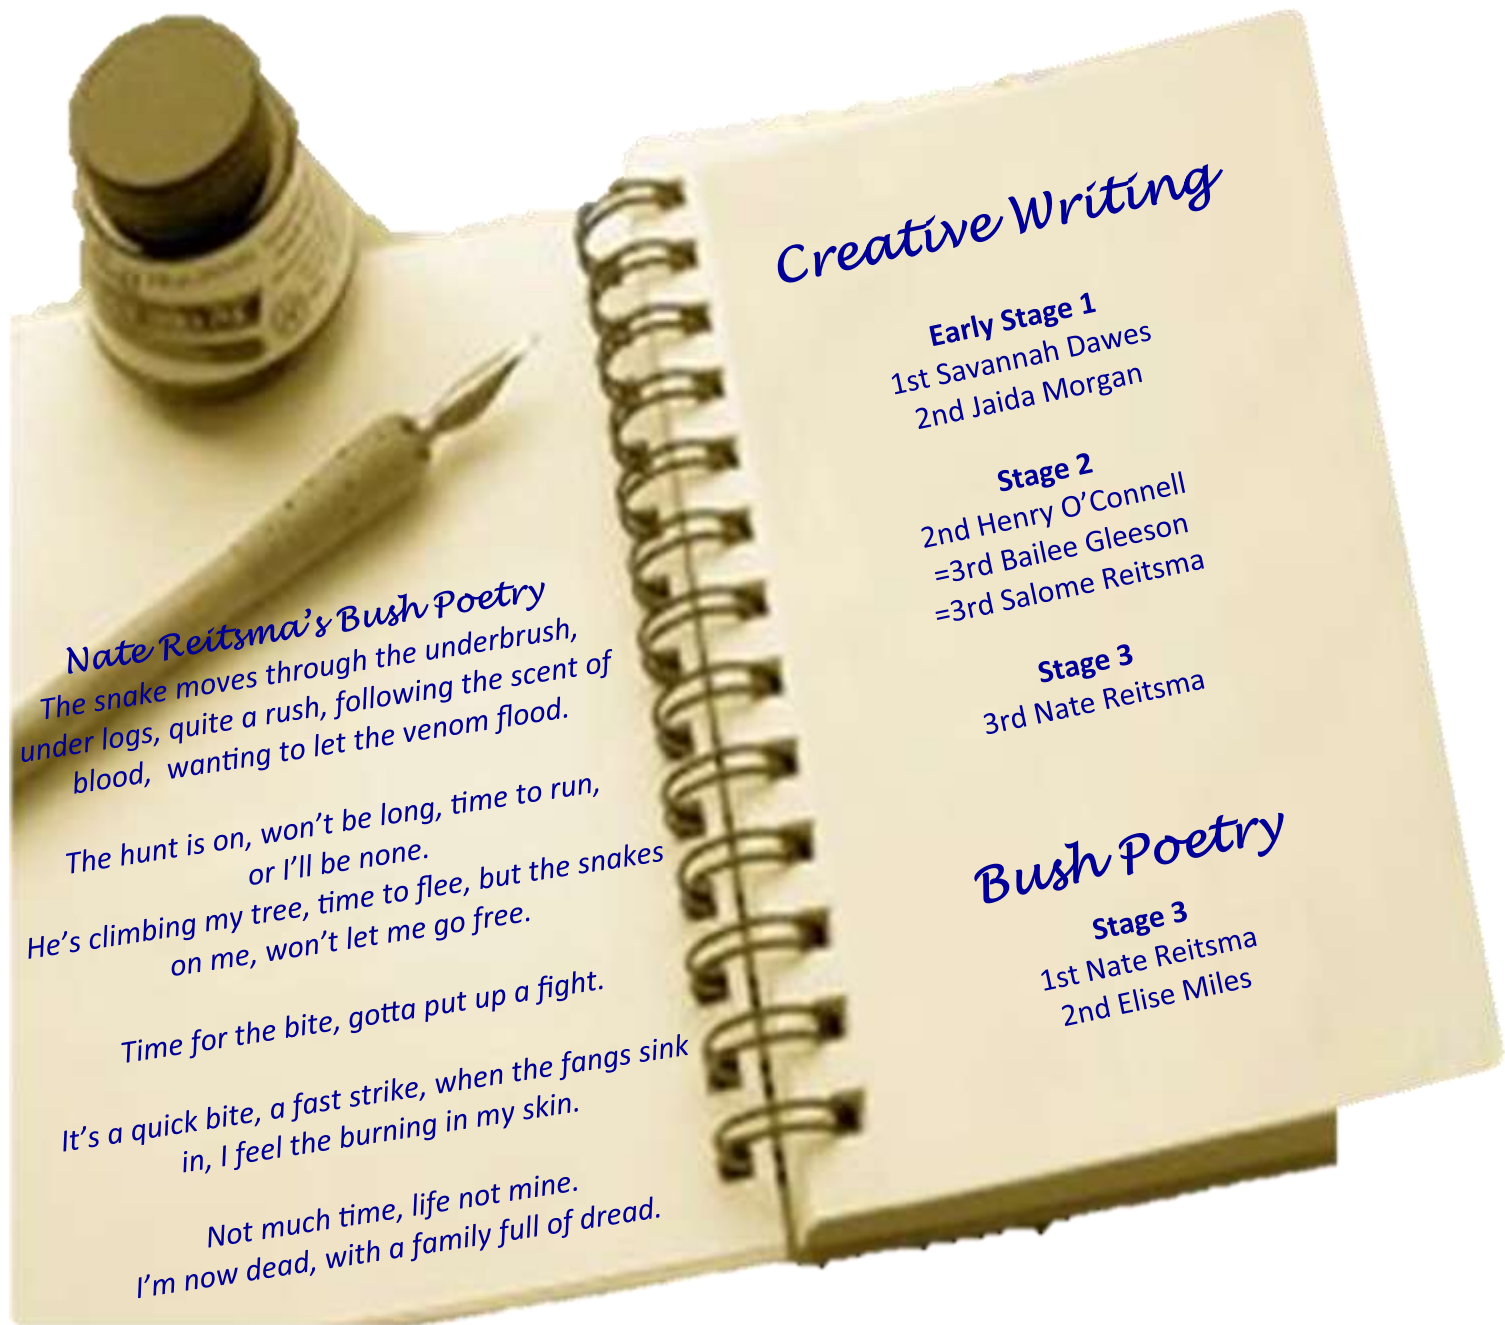 Nate Reitsma’s Bush Poetry
The snake moves through the underbrush,
under logs, quite a rush, following the scent of
blood,  wanting to let the venom flood.
The hunt is on, won’t be long, time to run,
or I’ll be none.
He’s climbing my tree, time to flee, but the snakes
on me, won’t let me go free.
Time for the bite, gotta put up a fight.
It’s a quick bite, a fast strike, when the fangs sink
in, I feel the burning in my skin.
Not much time, life not mine.
I’m now dead, with a family full of dread.
Creative Writing
Early Stage 1
1st Savannah Dawes
2nd Jaida Morgan
Stage 2
2nd Henry O’Connell
=3rd Bailee Gleeson
=3rd Salome Reitsma
Stage 3
3rd Nate Reitsma
Bush Poetry
Stage 3
1st Nate Reitsma
2nd Elise Miles